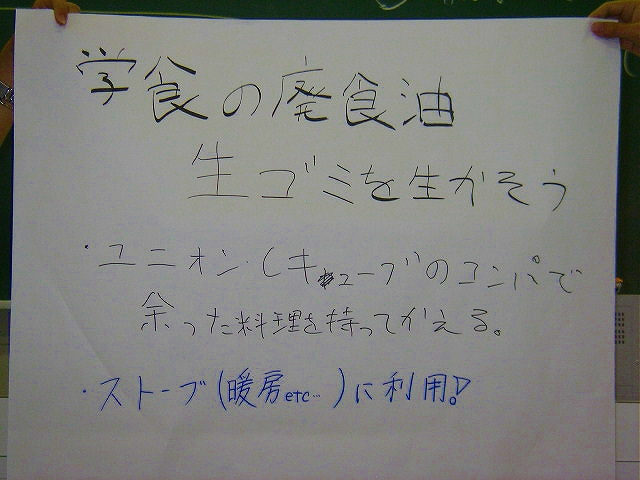 学食の廃食油
生ゴミを生かそう
・ユニオン.Cキューブのコンパで
余った料理を持ってかえる。
・ストーブ(暖房etc…)に利用!